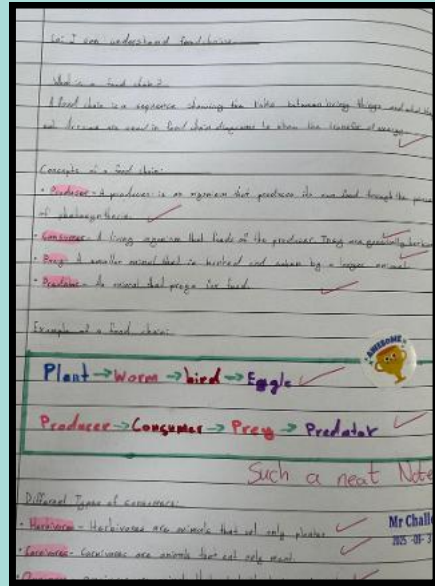 Lo: I can understand food chains.
What is a food chain?
A food chain is a sequence showing the links between living things and what they
eat. Arrows are used in food chain diagrams to show the transfer of energy.
Concepts of a food chain:
• Producer - A producer is an organism that produces its own food through the process
of photosynthesis.
• Consumer - A living organism that feeds of the producer. They are generally
• Prey - A smaller animal that is hunted and eaten by a larger animal.
• Predator - An animal that preys for food.
Example of a food chain:
AWESOME
Plant → Worm → bird → Eagle
Producer → Consumer → Prey → Predator
Such a neat Note
Different Types of consumers:
Mr Chall
• Herbivores - Herbivores are animals that eat only plants.
2025 -09- 3
• Carnivores - Carnivores are animals that eat only meat.